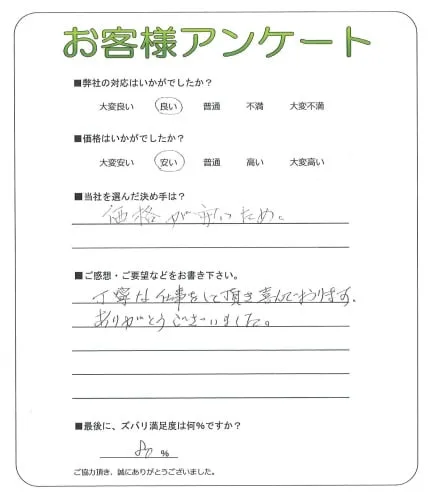 お客様アンケート
■弊社の対応はいかがでしたか?
大変良い 良い 普通 不満 大変不満
■価格はいかがでしたか?
大変安い 安い 普通 高い 大変高い
■当社を選んだ決め手は?
価格が安いため。
■ご感想・ご要望などをお書き下さい。
丁寧な仕事をして頂き喜んでおります.
ありがとうございました。
■最後に、ズバリ満足度は何%ですか?
80 %
ご協力頂き、誠にありがとうございました。